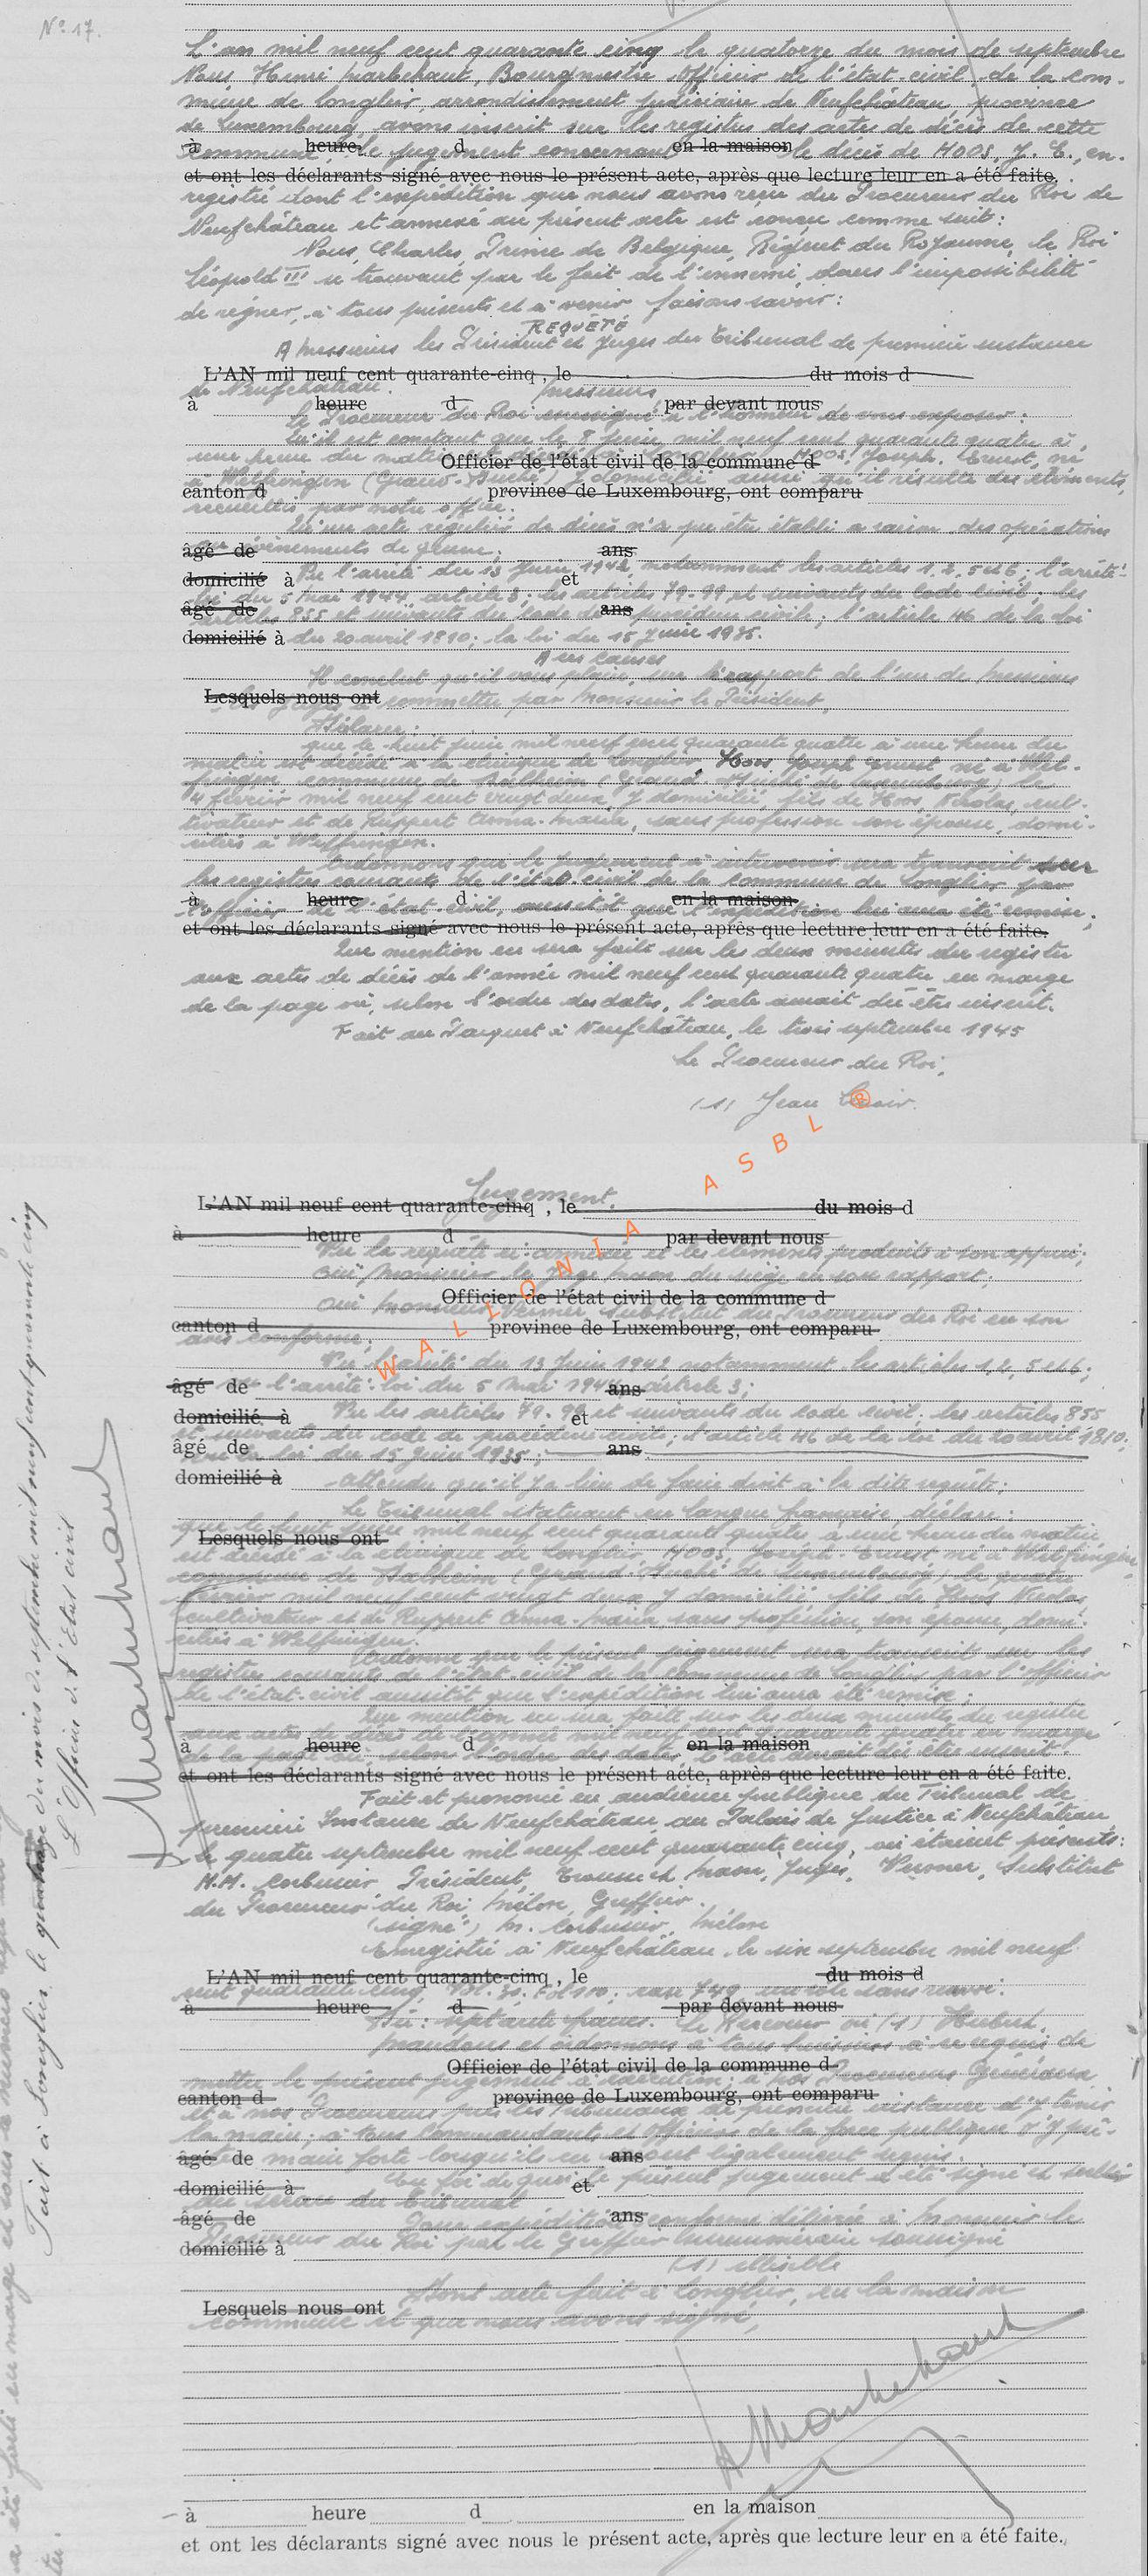 N° 17.
L'an mil neuf cent quarante cinq le quatorze du mois de septembre
Nous, Henri Marbehant, Bourgmestre Officier de l'état-civil de la com-
mune de Longlier arrondissement judiciaire de Neufchâteau province
de Luxembourg, avons inscrit sur les registres des actes de décès de cette
à heure d en la maison
commune, le jugement concernant le décès de HOOS, J. E., en-
et ont les déclarants signé avec nous le présent acte, après que lecture leur en a été faite.
registré dont l'expédition que nous avons reçu du Procureur du Roi de
Neufchâteau et annexé au présent acte est conçu comme suit:
Nous, Charles, Prince de Belgique, Régent du Royaume, le Roi
Léopold III se trouvant par le fait de l'ennemi, dans l'impossibilité
de régner, à tous présents et à venir faisons savoir:
REQUÊTE
A Messieurs les Président et Juges du Tribunal de première instance
L'AN mil neuf cent quarante-cinq, le du mois d
de Neufchâteau. Messieurs
à heure d par devant nous
Le Procureur du Roi soussigné a l'honneur de vous exposer:
Qu'il est constant que le 8 juin mil neuf cent quarante quatre à
une heure du matin HOOS, Joseph-Ernest, né
Officier de l'état civil de la commune d
à (Grand-Duché) y domicilié ainsi qu'il résulte des éléments
canton d province de Luxembourg, ont comparu
recueillis par notre office.
Qu'un acte régulier de décès n'a pu être établi à raison des opérations
ou évènements de guerre.
âgé de ans
Vu l'arrêté du 13 Juin 1942, notamment les articles 1, 2, 5 et 6; l'arrêté-
domicilié à et
loi du 5 mai 1944, article 3; les articles 79-99 et suivants du code civil; les
âgé de ans
articles 855 et suivants du code de procédure civile; l'article 46 de la loi
domicilié à du 20 avril 1810; la loi du 15 Juin 1935.
A ces causes
Il conclut qu'il vous plaise, sur le rapport de l'un de Messieurs
Lesquels nous ont
les Juges à commettre par Monsieur le Président,
Déclarer:
que le huit juin mil neuf cent quarante quatre à une heure du
matin est décédé à la clinique de Longlier, Hoos Joseph Ernest né à Wel-
fringen commune de Dalheim (Grand-Duché de Luxembourg) le
4 février mil neuf cent vingt deux, y domicilié, fils de Hoos, Nicolas, cul-
tivateur et de Ruppert Anna-Maria, sans profession son épouse, domi-
ciliés à Welfringen.
Ordonnons que le jugement à intervenir sera transcrit sur
les registres courants de l'état-civil de la commune de Longlier par
à heure d en la maison
l'officier de l'état-civil, aussitôt que l'expédition lui aura été remise;
et ont les déclarants signé avec nous le présent acte, après que lecture leur en a été faite.
Que mention en sera faite sur les deux minutes du registre
aux actes de décès de l'année mil neuf cent quarante quatre en marge
de la page où, selon l'ordre des dates, l'acte aurait dû être inscrit.
Fait au Parquet à Neufchâteau, le trois septembre 1945
Le Procureur du Roi,
(s) Jean
WALLONIA ASBL ®
Jugement.
L'AN mil neuf cent quarante-cinq, le du mois d
à heure d par devant nous
Vu la requête ci-annexée et les éléments produits à son appui;
Oui Monsieur le Juge du siège en son rapport;
Officier de l'état civil de la commune d
Oui Monsieur Werner, Substitut du Procureur du Roi en son
canton d province de Luxembourg, ont comparu
avis conforme;
Vu l'arrêté du 13 Juin 1942 notamment les articles 1, 2, 5 et 6;
âgé de ans
l'arrêté-loi du 5 mai 1944, article 3;
domicilié à et
Vu les articles 79-99 et suivants du code civil; les articles 855
et suivants du code de procédure civile; l'article 46 de la loi du 20 avril 1810;
âgé de ans
la loi du 15 juin 1935;
domicilié à
Attendu qu'il y a lieu de faire droit à la dite requête;
Le Tribunal statuant en langue française, déclare:
Lesquels nous ont
que le huit juin mil neuf cent quarante quatre, à une heure du matin
est décédé à la clinique de Longlier, HOOS, Joseph-Ernest, né à Welfringen,
commune de Dalheim (Grand-Duché de Luxembourg) le quatre
février mil neuf cent vingt deux y domicilié, fils de Hoos Nicolas,
cultivateur et de Ruppert Anna-Maria, sans profession, son épouse, domi-
ciliés à Welfringen.
Ordonne que le présent jugement sera transcrit sur les
registres courants de l'état-civil de la commune de Longlier par l'officier
de l'état-civil aussitôt que l'expédition lui aura été remise;
Que mention en sera faite sur les deux minutes du registre
aux actes de décès de l'année mil neuf cent quarante quatre en marge
à heure d en la maison
de la page où, selon l'ordre des dates, l'acte aurait dû être inscrit.
et ont les déclarants signé avec nous le présent acte, après que lecture leur en a été faite.
Fait et prononcé en audience publique du Tribunal de
première Instance de Neufchâteau au Palais de Justice à Neufchâteau,
le quatre septembre mil neuf cent quarante cinq, où étaient présents:
M.M. Corbusier Président, Juges, Werner, Substitut
du Procureur du Roi, Mélon, Greffier.
(signé) M. Corbusier, Mélon
Enregistré à Neufchâteau, le six septembre mil neuf
L'AN mil neuf cent quarante-cinq, le du mois d
cent quarante cinq, sans renvoi.
à heure d par devant nous
Le Receveur (s) Hubert.
Mandons et ordonnons à tous huissiers à ce requis de
Officier de l'état civil de la commune d
mettre le présent jugement à exécution; à nos Procureurs Généraux
canton d province de Luxembourg, ont comparu
et à nos Procureurs près les Tribunaux de première instance d'y tenir
la main; à tous commandants et officiers de la force publique d'y prê-
âgé de ans
ter main forte lorsqu'ils en seront légalement requis.
En foi de quoi le présent jugement a été signé et scellé
domicilié à et
du sceau du Tribunal
âgé de ans
Pour expédition conforme délivrée à Monsieur le
domicilié à
Procureur du Roi par le Greffier surnuméraire soussigné
(s) illisible
Dont acte fait à Longlier, en la maison
Lesquels nous ont
commune et que nous avons signé,
H Marbehant
à heure d en la maison
et ont les déclarants signé avec nous le présent acte, après que lecture leur en a été faite.
a été faite en marge et sous le numéro
Fait à Longlier, le quatorze du mois de septembre mil neuf cent quarante cinq
L'Officier de l'Etat civil
HMarbehant